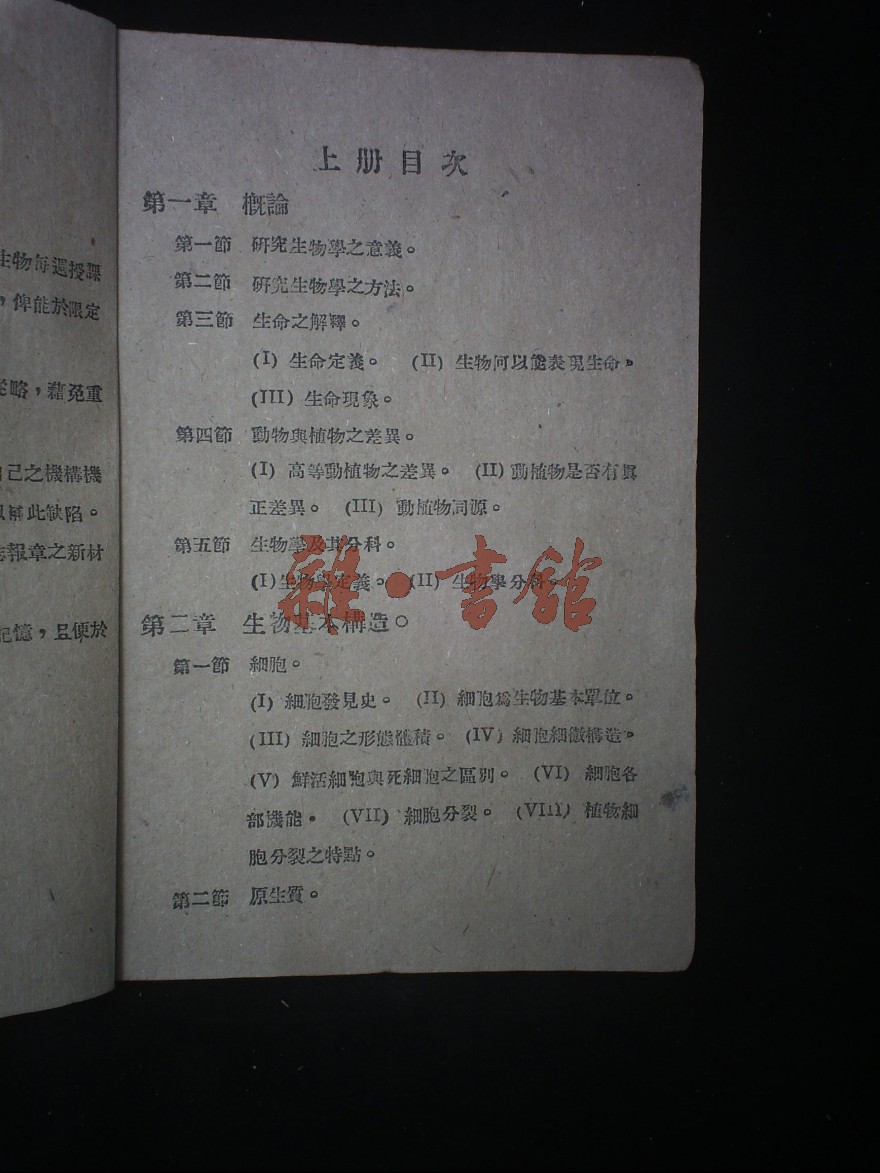 生物每週授課
，俾能於限定
從略，藉免重
自己之機構機
以補此缺陷。
誌報章之新材
記憶，且便於
上册目次
第一章 概論
第一節 研究生物學之意義。
第二節 研究生物學之方法。
第三節 生命之解釋。
(I) 生命定義。 (II) 生物何以能表現生命。
(III) 生命現象。
第四節 動物與植物之差異。
(I) 高等動植物之差異。 (II) 動植物是否有眞
正差異。 (III) 動植物同源。
第五節 生物學及其分科。
(I) 生物學定義。 (II) 生物學分科。
雜·書館
第二章 生物基本構造。
第一節 細胞。
(I) 細胞發見史。 (II) 細胞爲生物基本單位。
(III) 細胞之形態體積。 (IV) 細胞細微構造。
(V) 鮮活細胞與死細胞之區別。 (VI) 細胞各
部機能。 (VII) 細胞分裂。 (VIII) 植物細
胞分裂之特點。
第二節 原生質。